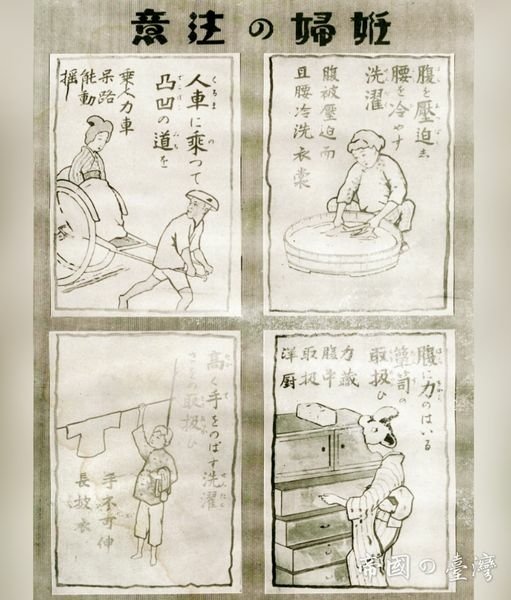 姙婦の注意
腹を壓迫し
腰を冷やす
洗濯
腹被壓迫而
且腰冷洗衣裳
人車に乗つて
凸凹の道を
乗人力車
呆路
能動
揺
腹に力のはいる
箪笥の
取扱ひ
力藏
腹半
取扱
洋厨
高く手をのばす洗濯
の取扱ひ
手不可伸
長披衣
帝國の臺灣